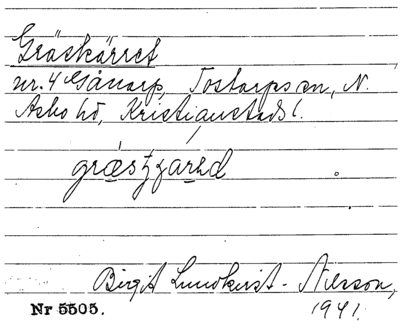 Gräskärret
nr. 4 Gånarp, Tostarps sn, N.
Asbo hd, Kristianstads l.
Birgit Lundkvist - Nilsson,
Nr 5505.
1941.